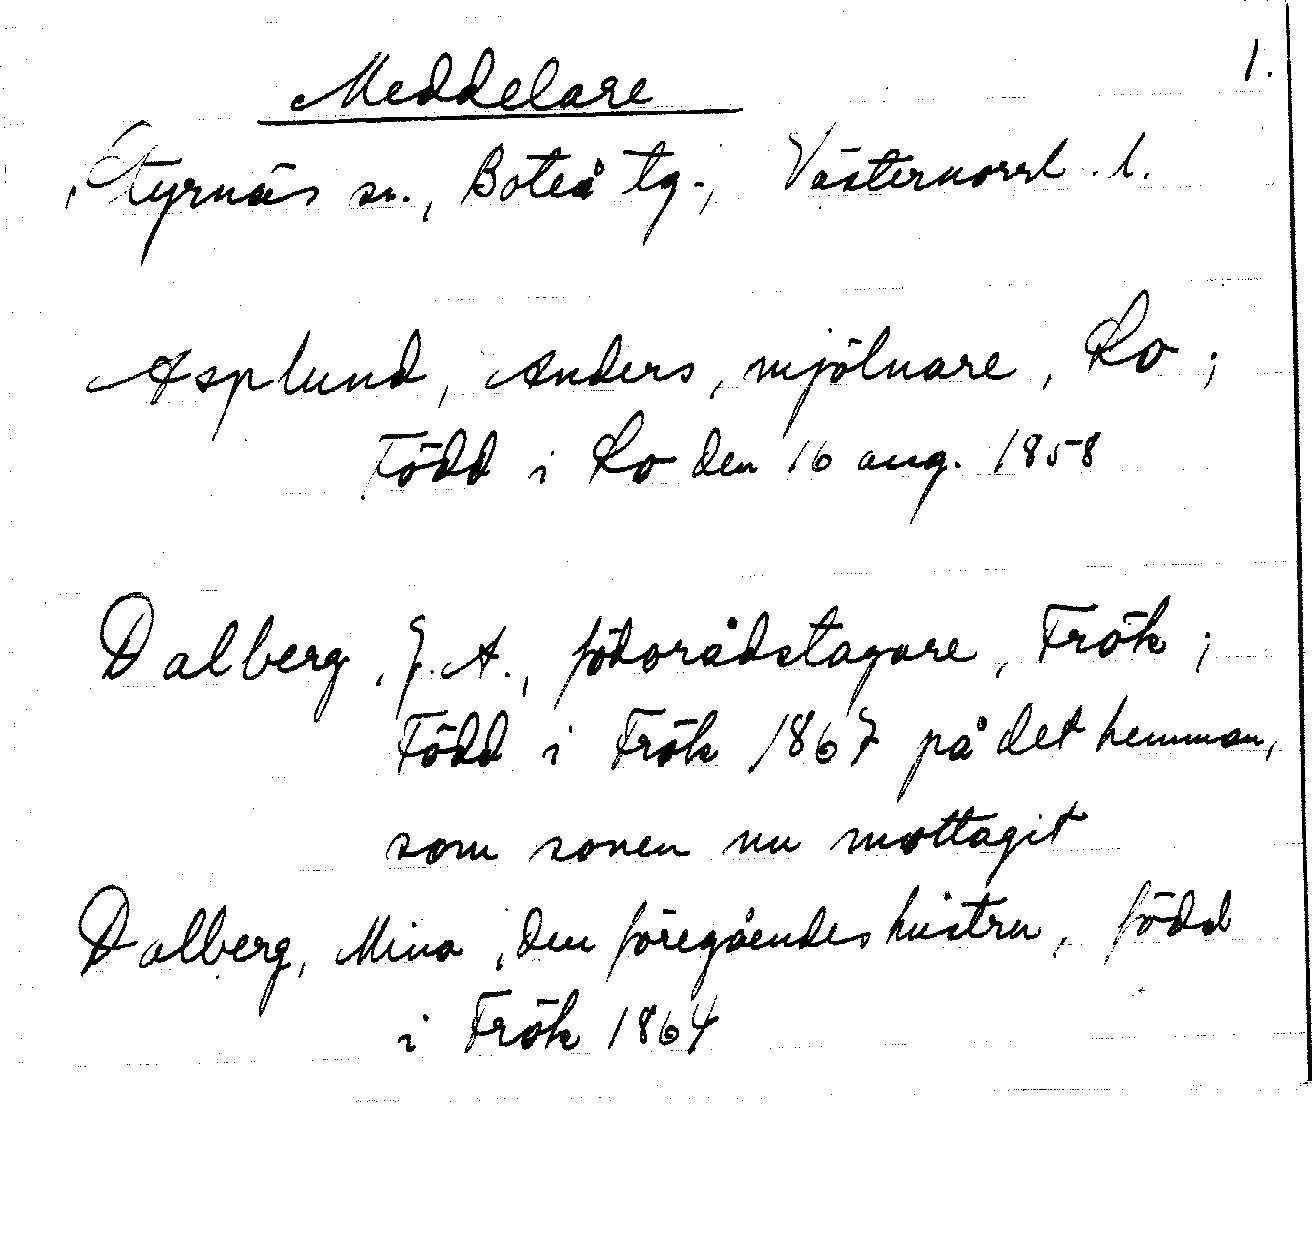 Meddelare 1.
Styrnäs sn., Boteå tg., Västernorrl. l.
Asplund, Anders, mjölnare, Lo;
Född i Lo den 16 aug. 1858
Dalberg, J. A., födorådstagare, Frök;
Född i Frök 1867 på det hemman,
som sonen nu mottagit
Dalberg, Mina, den föregåendes hustru, född
i Frök 1864